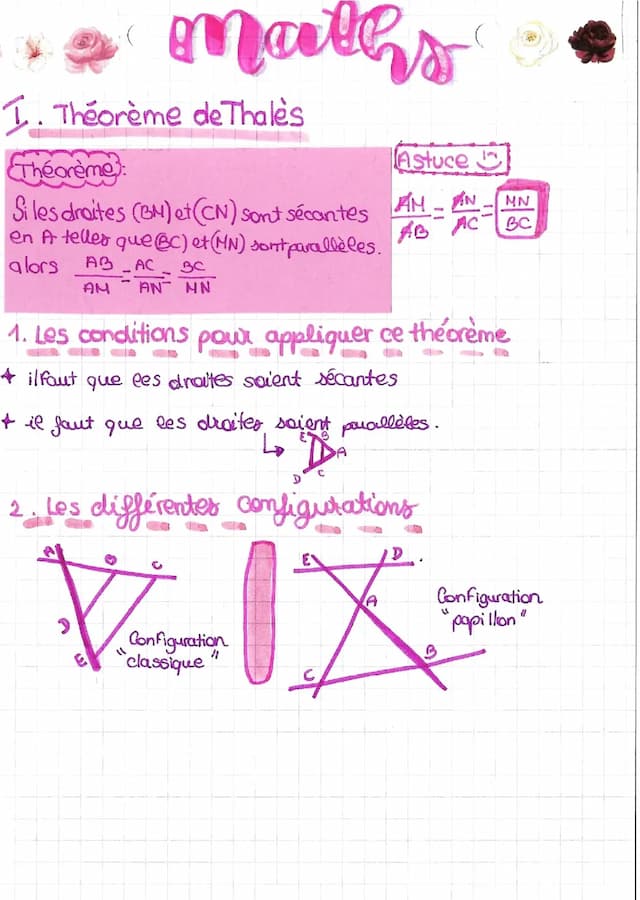 maths
I. Théorème de Thalès
Théorème:
Si les droites (BM) et (CN) sont sécantes
en A telles que (BC) et (MN) sont parallèles.
alors AB/AM = AC/AN = BC/MN
Astuce
AM/AB = AN/AC = MN/BC
1. Les conditions pour appliquer ce théorème
+ il faut que les droites soient sécantes
+ il faut que les droites soient parallèles.
E B
A
D C
2. Les différentes configurations
A B C
D
E
Configuration
"classique"
E D
A
B
C
Configuration
"papillon"